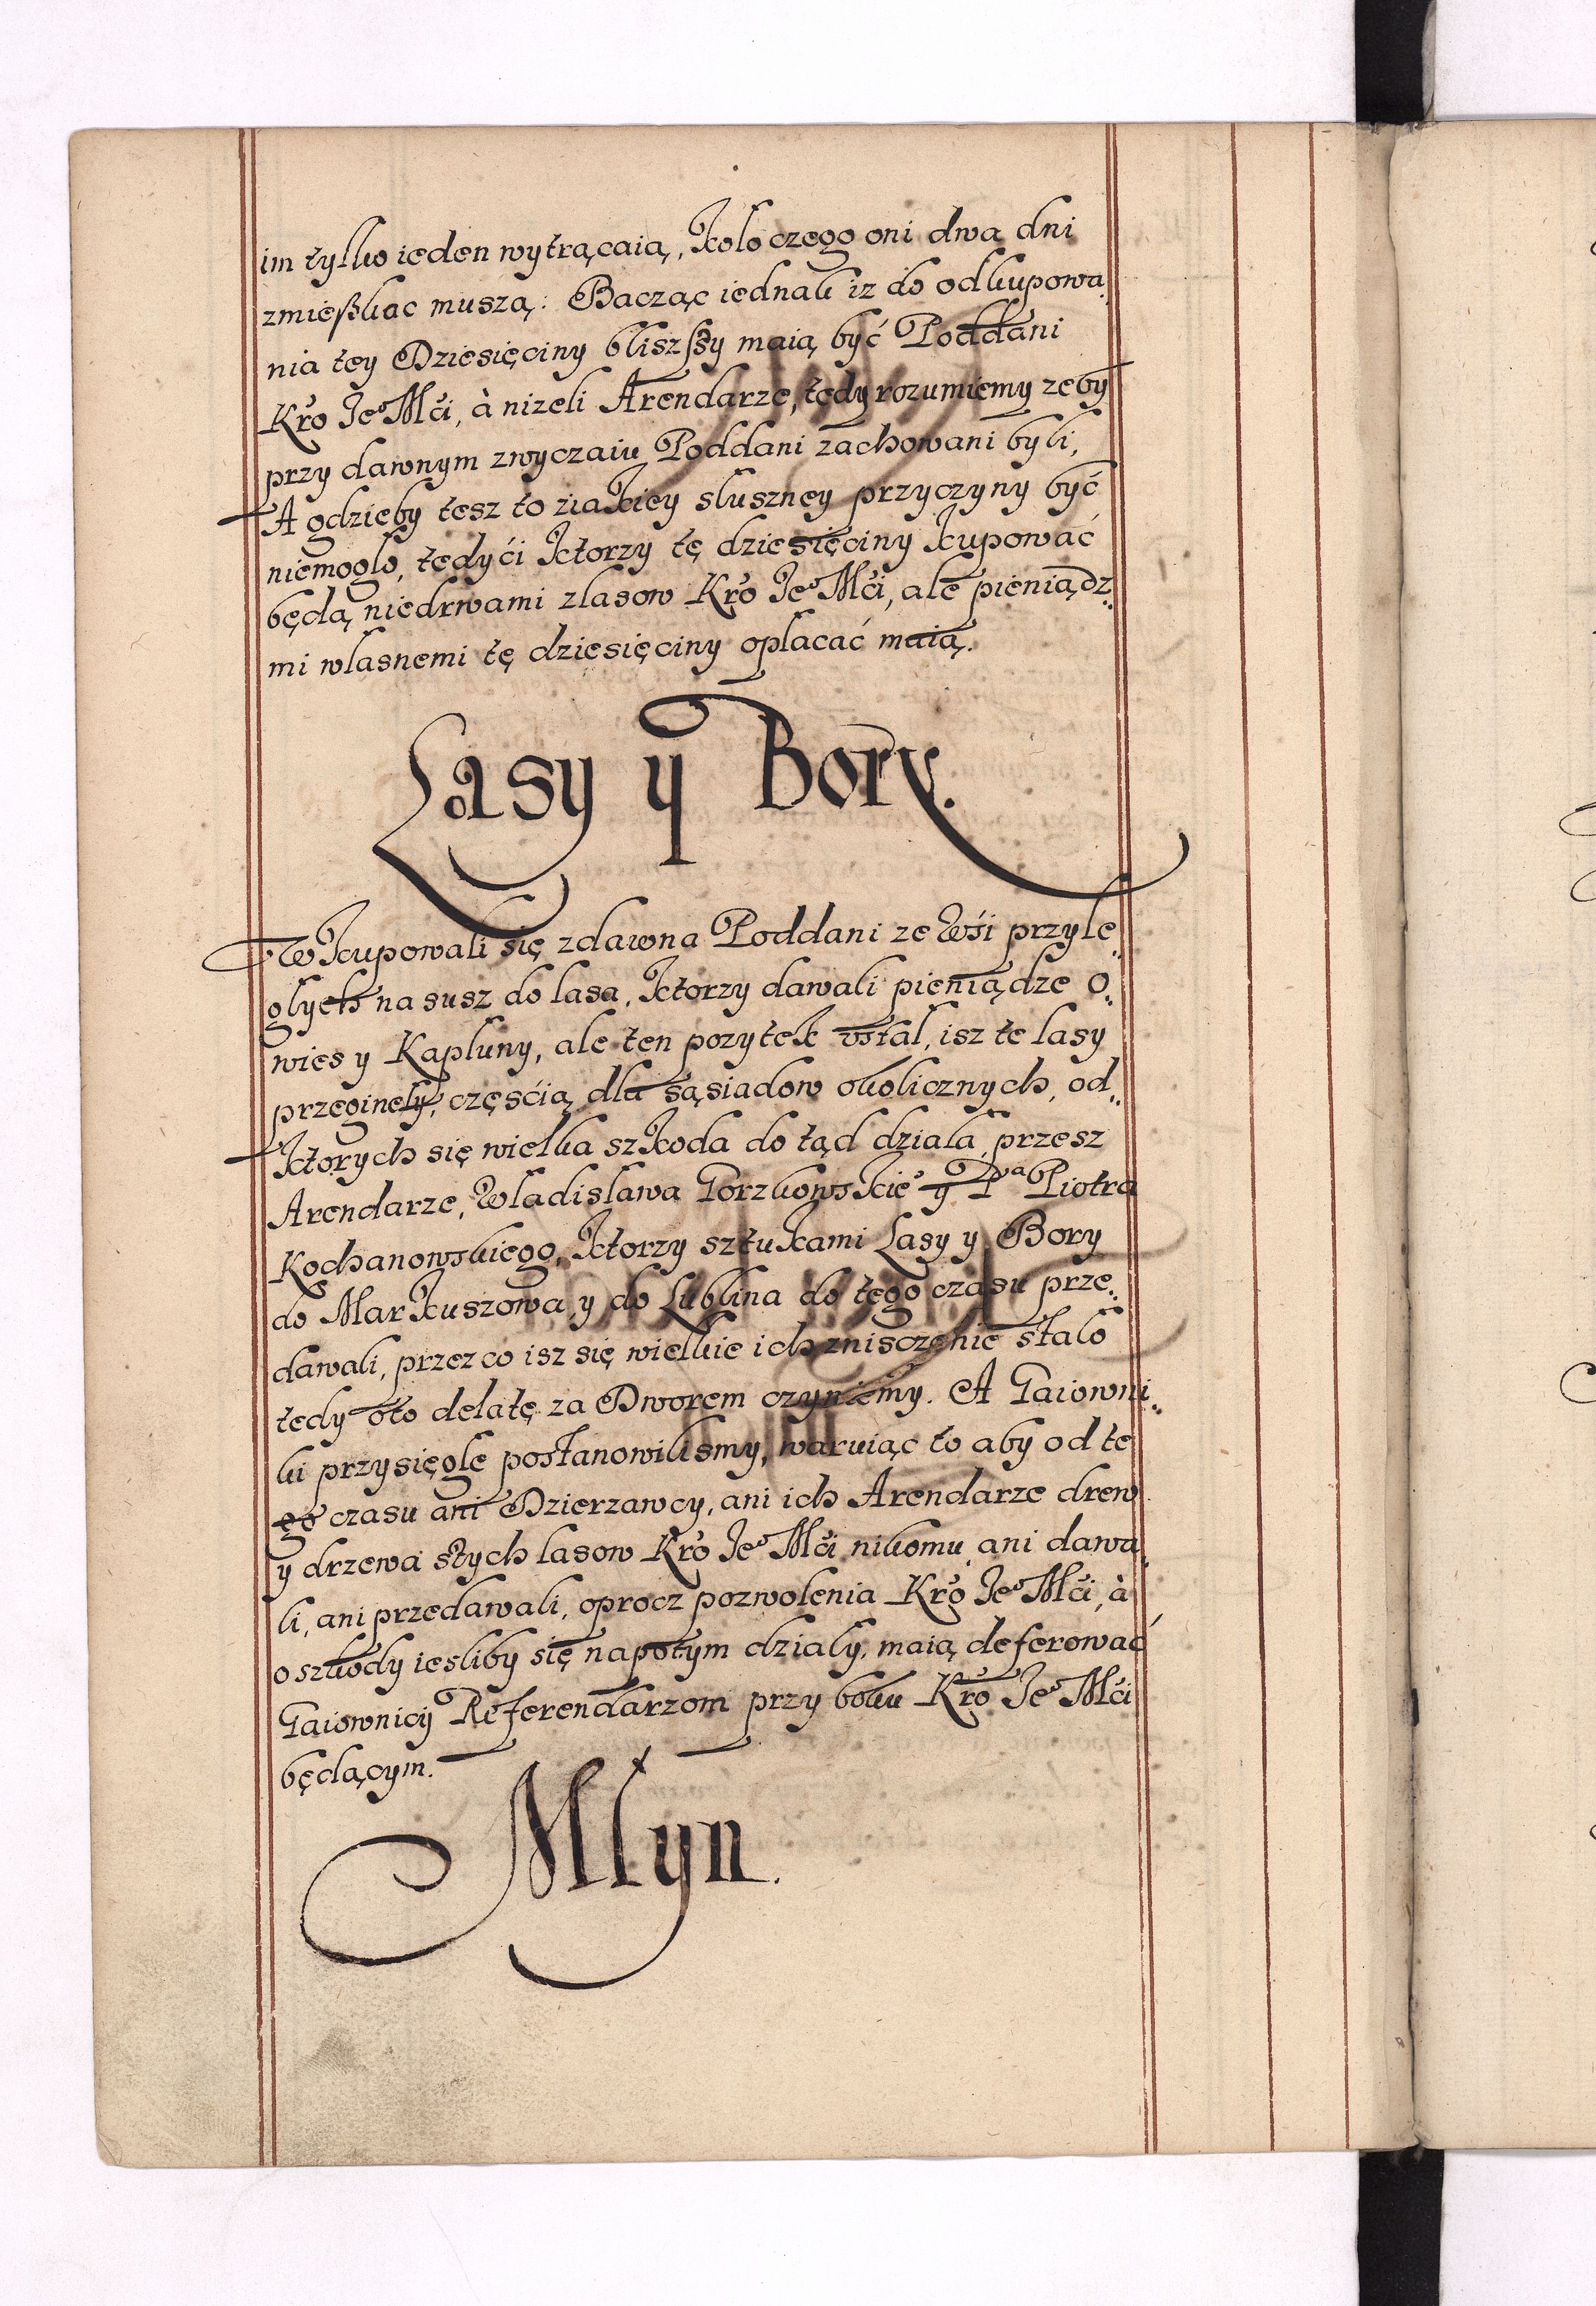 im tylko ieden wytrącaią, kolo czego oni dwa dni
zmieszkac muszą: Bacząc iednak iz do odkupowa„
nia tey Dziesięciny blizszy maią być Poddani
Kro Je° Mći, à nizeli Arendarze, tedy rozumiemy zeby
przy dawnym zwyczaiu Poddani zachowani byli,
A gdzieby tesz to ziakiey sluszney przyczyny być
niemoglo, tedyći ktorzy tę dziesięciny kupować
będą, niedrwami zlasow Kro Je° Mći, ale pieniądz„
mi wlasnemi tę dziesięciny oplacać maią.
Lasy y Bory.
Wkupowali się zdawna Poddani ze Wśi przyle„
glych na susz do lasa, ktorzy dawali pieniądze O„
wies y Kapluny, ale ten pozytek ustal, isz te lasy
przeginely, częśćią dla sąsiadow okolicznych, od„
ktorych się wielka szkoda do tąd dziala, przesz
Arendarze, Wladislawa Gorzkowskie° y Pa Piotra
Kochanowskiego, ktorzy sztukami Lasy y Bory
do Markuszowa y do Lublina do tego czasu prze„
dawali, przez co isz się wielkie ich znisczenie stalo
tedy oto delatę za Dworem czyniemy. A Gaiowni„
ki przysięgle postanowilismy, waruiąc to aby od te
go czasu ani Dzierzawcy, ani ich Arendarze drew
y drzewa stych lasow Kro Je° Mći nikomu ani dawa„
li, ani przedawali, oprocz pozwolenia Kro Je° Mći, à
o szkody iesliby się napotym dzialy, maią deferować
Gaiownicy Referendarzom przy boku Kro Je° Mći
będącym.
Mlyn.